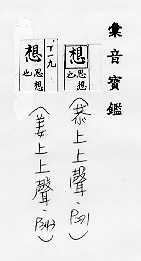 彙音寶鑑
想
思想
也
(恭上上聲·P521)
丁一九
想
思想
也
(姜上上聲·P343)